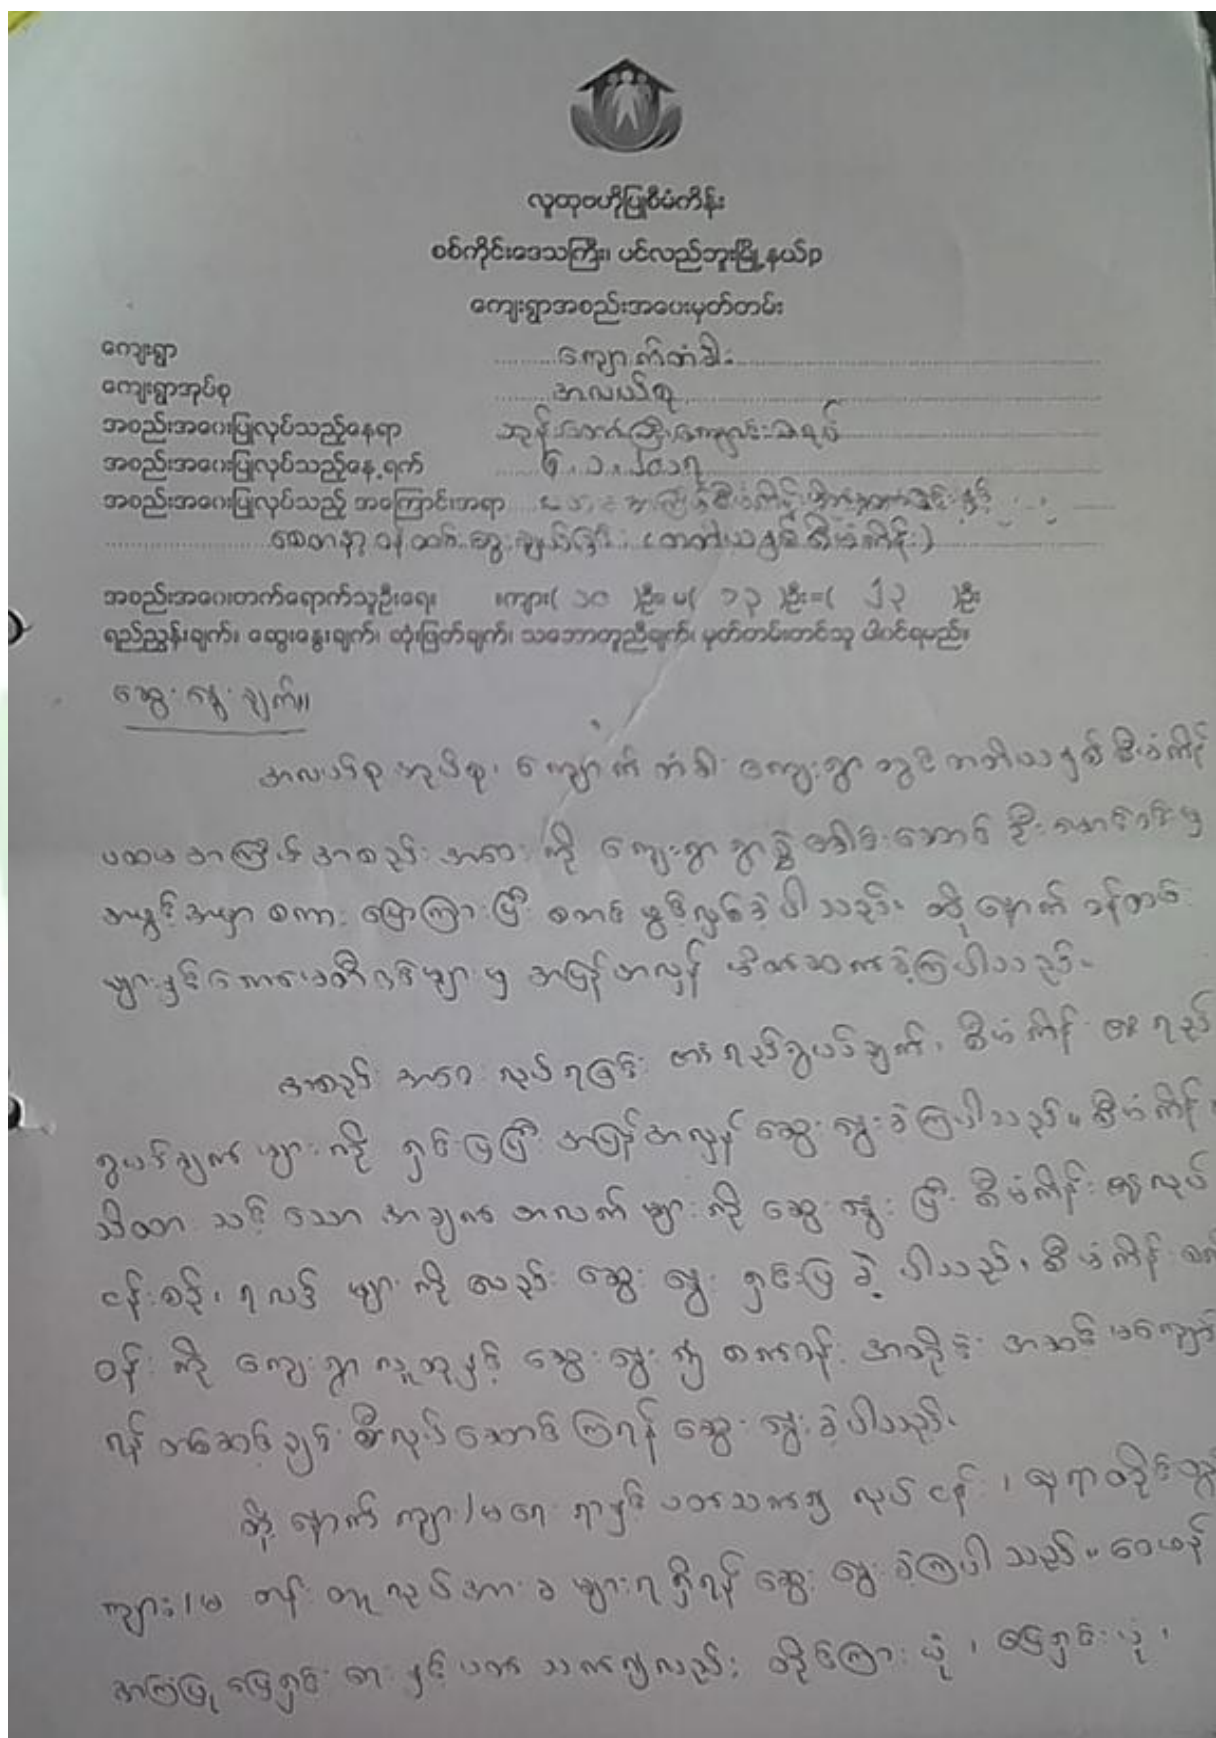 လူထုဗဟိုပြုစီမံကိန်း
စစ်ကိုင်းဒေသကြီး၊ ပင်လည်ဘူးမြို့နယ်p
ကျေးရွာအစည်းအဝေးမှတ်တမ်း
ကျေးရွာ ကျောက်တံခါး
ကျေးရွာအုပ်စု အလယ်စု
အစည်းအဝေးပြုလုပ်သည့်နေရာ ဘုန်းတော်ကြီးကျောင်း
အစည်းအဝေးပြုလုပ်သည့်နေ့ရက် ၆.၁.၂၀၁၇
အစည်းအဝေးပြုလုပ်သည့် အကြောင်းအရာ ပထမအကြိမ်စီမံကိန်းမိတ်ဆက်ခြင်းနှင့်
စေတနာ့ဝန်ထမ်းရွေးချယ်ခြင်း (တတိယနှစ်စီမံကိန်း)
အစည်းအဝေးတက်ရောက်သူဦးရေ ကျား( ၁၀ )ဦး၊ မ( ၁၃ )ဦး=( ၂၃ )ဦး
ရည်ညွှန်းချက်၊ ဆွေးနွေးချက်၊ ဆုံးဖြတ်ချက်၊ သဘောတူညီချက်၊ မှတ်တမ်းတင်သူ ပါဝင်ရမည်။
ဆွေးနွေးချက်။
အလယ်စုအုပ်စု၊ ကျောက်တံခါးကျေးရွာတွင် တတိယနှစ်စီမံကိန်း
ပထမအကြိမ်အစည်းအဝေးကို ကျေးရွာရွာ ခေါင်းဆောင် ဦး မှ
အဖွင့်အမှာစကားပြောကြားပြီး စတင်ဖွင့်လှစ်ခဲ့ပါသည်။ ထို့နောက် ဝန်ထမ်း
များနှင့်ကော်မတီဝင်များမှ အပြန်အလှန် မိတ်ဆက်ခဲ့ကြပါသည်။
အစည်းအဝေးလုပ်ရခြင်း ရည်ရွယ်ချက်၊ စီမံကိန်း ရည်
ရွယ်ချက်များကို ရှင်းပြပြီး အပြန်အလှန် ဆွေးနွေးခဲ့ကြပါသည်။ စီမံကိန်း
သိထားသင့်သော အချက်အလက်များကို ဆွေးနွေးပြီး စီမံကိန်း လုပ်
ငန်းစဉ်၊ ရလဒ်များကိုလည်း ဆွေးနွေးရှင်းပြခဲ့ပါသည်။ စီမံကိန်း စက်
ဝန်းကို ကျေးရွာလူထုနှင့် ဆွေးနွေး၍ စက်ဝန်းအတိုင်း အဆင့်မကျော်
ရန် တစ်ဆင့်ချင်းစီလုပ်ဆောင်ကြရန် ဆွေးနွေးခဲ့ပါသည်။
ထို့နောက် ကျား/မရေးရာနှင့်ပတ်သက်၍ လုပ်ငန်း၊
ကျား/မ တန်းတူလုပ်အားခများရရှိရန် ဆွေးနွေးခဲ့ကြပါသည်။ ဝေဖန်
အကြံပြု ဖြေရှင်းရေးနှင့်ပတ်သက်၍လည်း တိုင်ကြားပုံ၊ ဖြေရှင်းပုံ၊